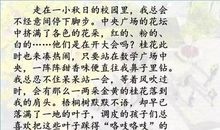 走在一小秋日的校园里，我总会
不经意间停下脚步。中央广场的花坛
中挤满了各色的花朵，红的、粉的、
白的……他们是在开大会吗？桂花此
时也来凑热闹，只要站在数学广场中
央，一阵阵甜香味便直往我鼻子里钻
我总忍不住呆呆站一会，等着风吹过
时，会有那么一两朵金黄的桂花落到
我的肩头。梧桐树默默不语，却早已
落满了一地的叶子，调皮的孩子们总
喜欢把这些叶子踩得“咯吱咯吱”的